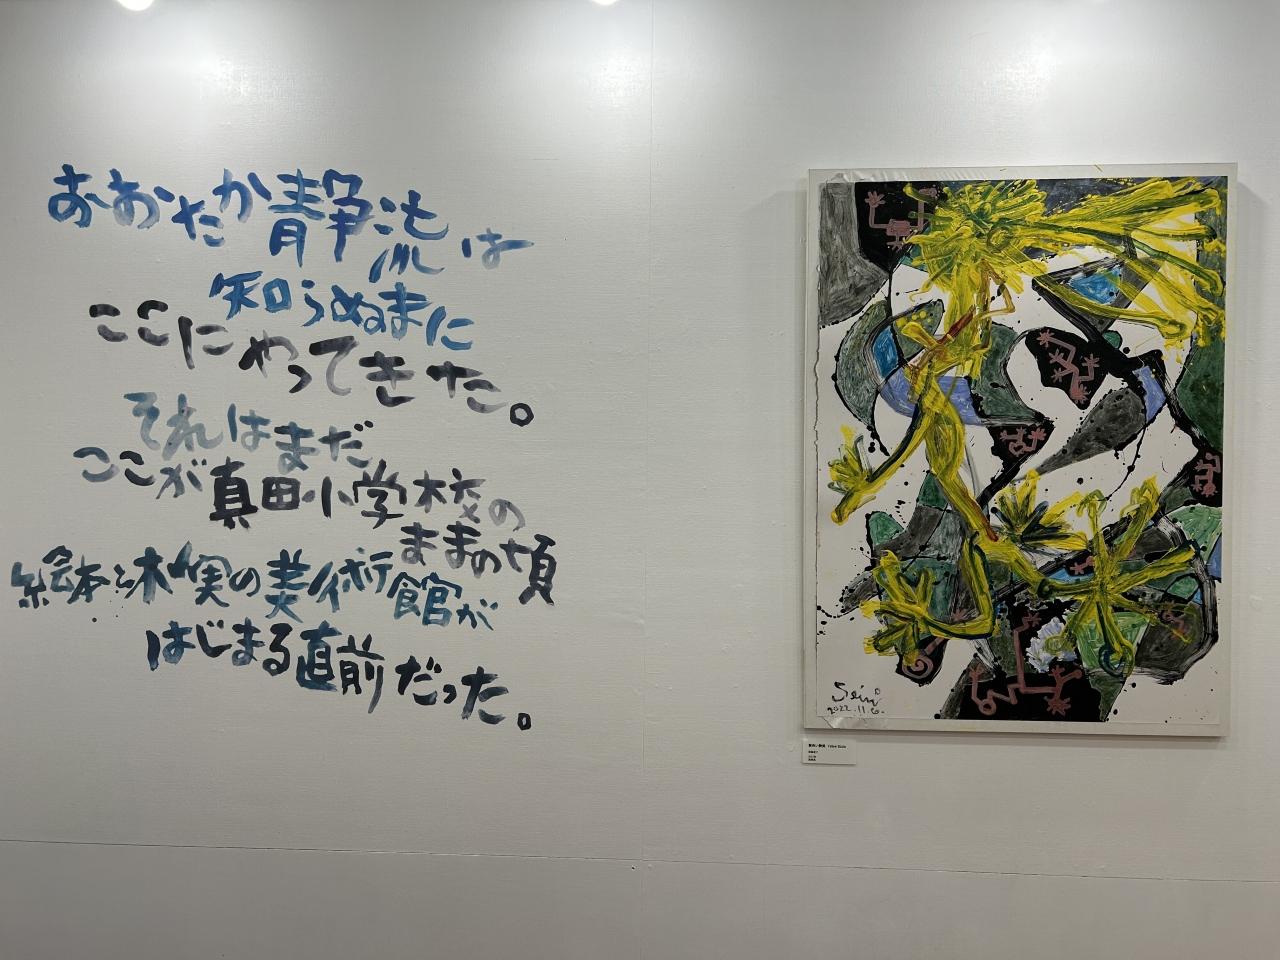 おおたか静流は
知らぬまに
ここにやってきた。
それはまだ
ここが真田小学校の
ままの頃
絵本と木の実の美術館が
はじまる直前だった。
Seiji
2022.11.6.